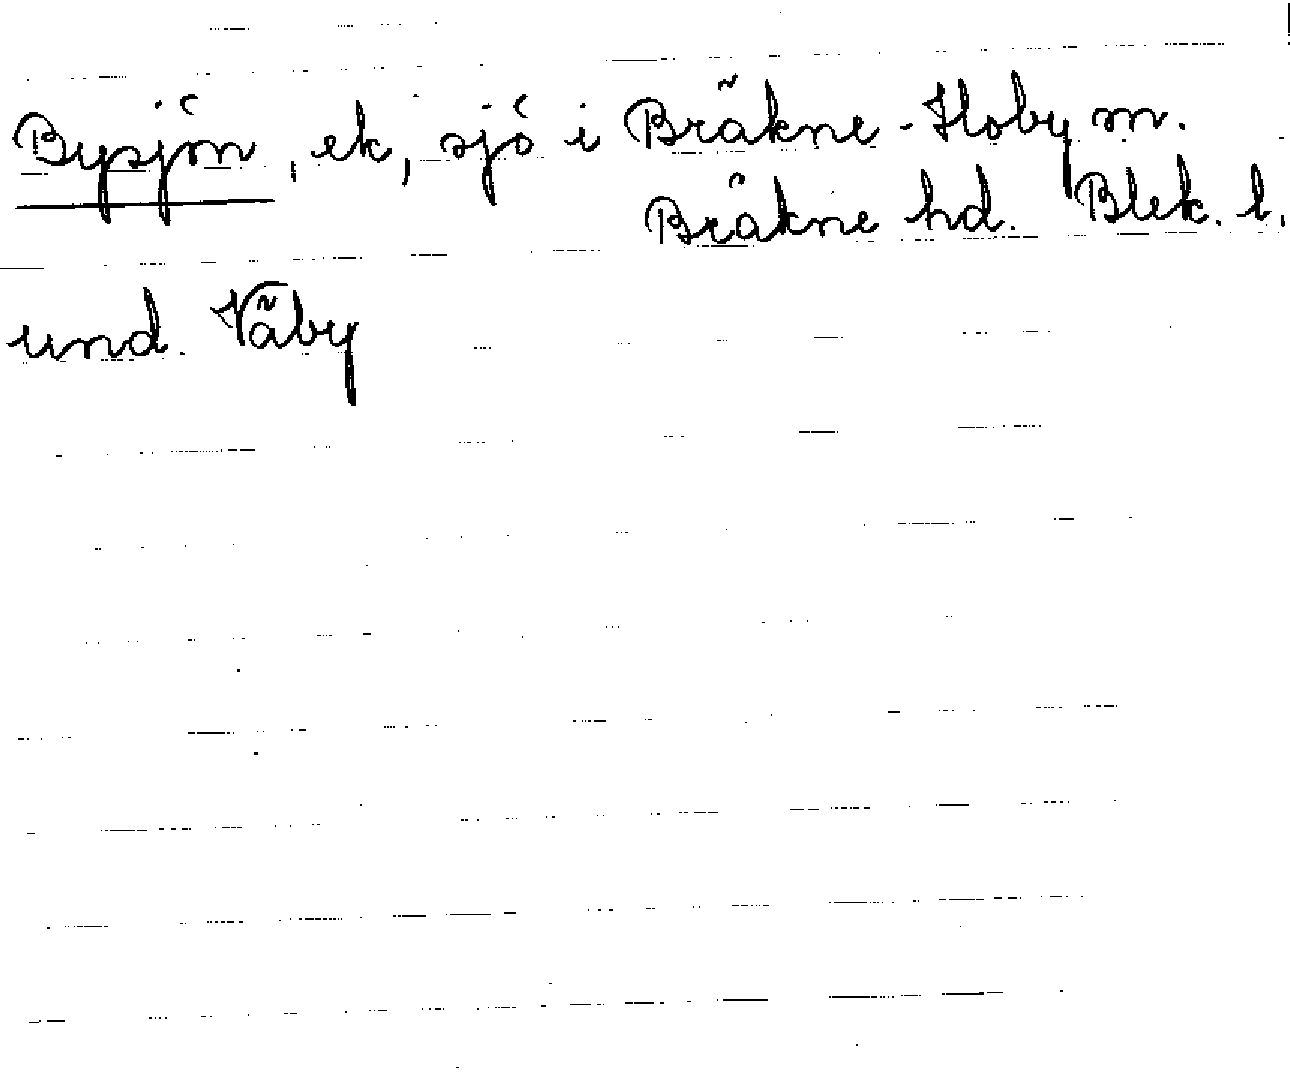 Bysjön, ek, sjö i Bräkne-Hoby sn.
Bräkne hd. Blek. l.
und. Väby